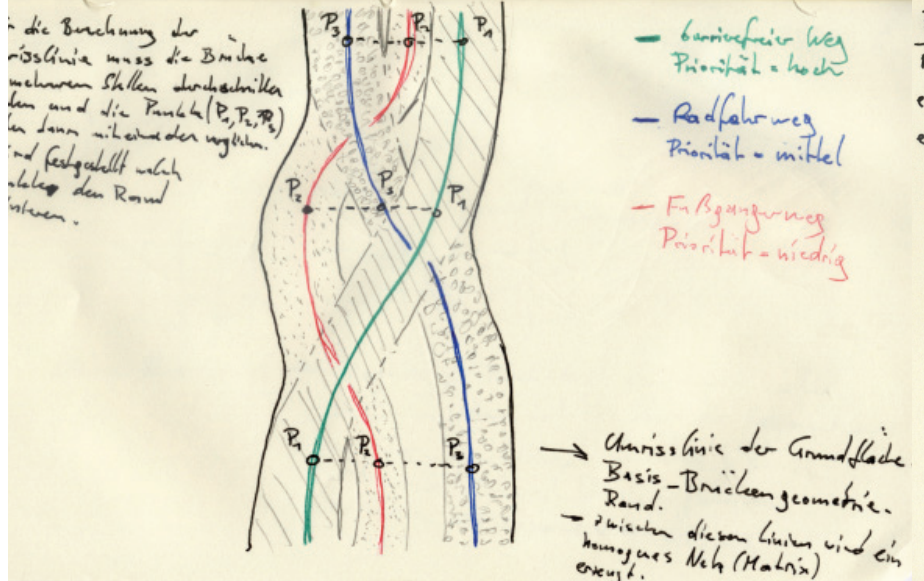 die Berechnung der
risslinie muss die Brücke
mehreren Stellen durchschnitten
den und die Punkte (P₁, P₂, P₃)
dann miteinander verglichen.
festgestellt welche
den Rand
P₃
P₂
P₁
P₂
P₃
P₁
P₁
P₂
P₃
– barrierefreier Weg
Priorität = hoch
– Radfahrweg
Priorität = mittel
– Fußgängerweg
Priorität = niedrig
→ Umrisslinie der Grundfläche.
Basis-Brückengeometrie.
Rand.
– zwischen diesen Linien wird ein
homogenes Netz (Matrix)
erzeugt.